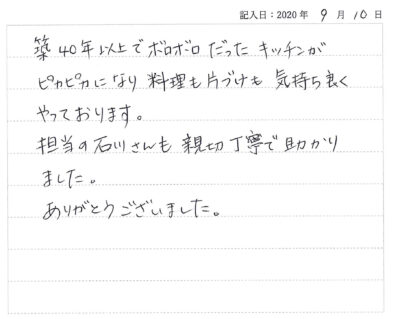 記入日：2020年 9月 10日
築40年以上でボロボロだったキッチンが
ピカピカになり料理も片づけも気持ち良く
やっております。
担当の石川さんも親切丁寧で助かり
ました。
ありがとうございました。